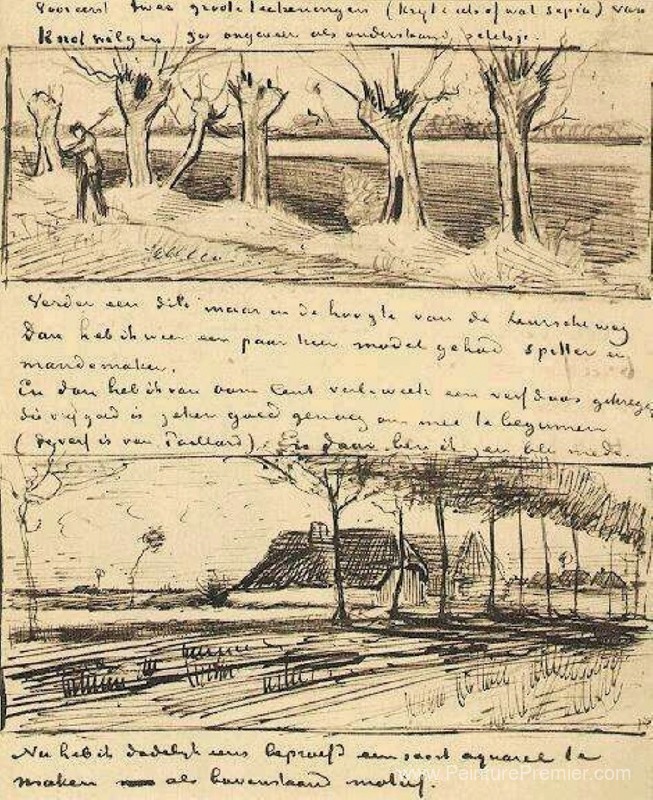 Vooreerst twee groote teekeningen (krijt & iets of wat sepia) van
Knotwilgen zoo ongeveer als onderstaand schetsje.
Verder een dito maar in de hoogte van de Leursche weg
Dan heb ik weer een paar keer model gehad spitter en
mandemaker.
En dan heb ik van oom Cent verl. week een verfdoos gekrege
die vrij goed is zeker goed genoeg om mee te beginnen
(de verf is van Paillard). En daar ben ik zeer blij mede.
Nu heb ik dadelijk eens beproefd een soort aquarel te
maken als bovenstaand motief.
www.PeinturePremier.com